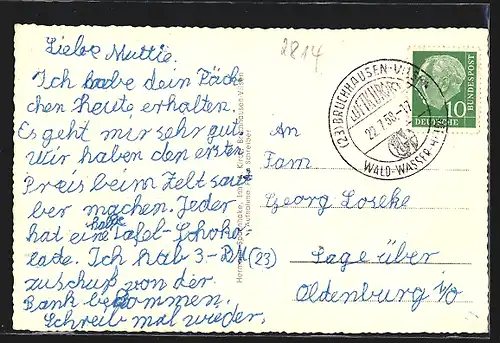 2814
Liebe Muttie.
Ich habe dein Päck-
chen heute erhalten.
Es geht mir sehr gut.
Wir haben den ersten
Preis beim Zelt sau-
ber machen. Jeder
hat eine halbe Tafel Schoko
lade. Ich hab 3- DM
zuschuß von der
Bank bekommen.
Schreib mal wieder.
(23) BRUCHHAUSEN-VILSEN
LUFTKURORT
22.7.58
WALD-WASSER
10
DEUTSCHE
BUNDESPOST
An
Fam
Georg
(23) Sage über
Oldenburg i/o